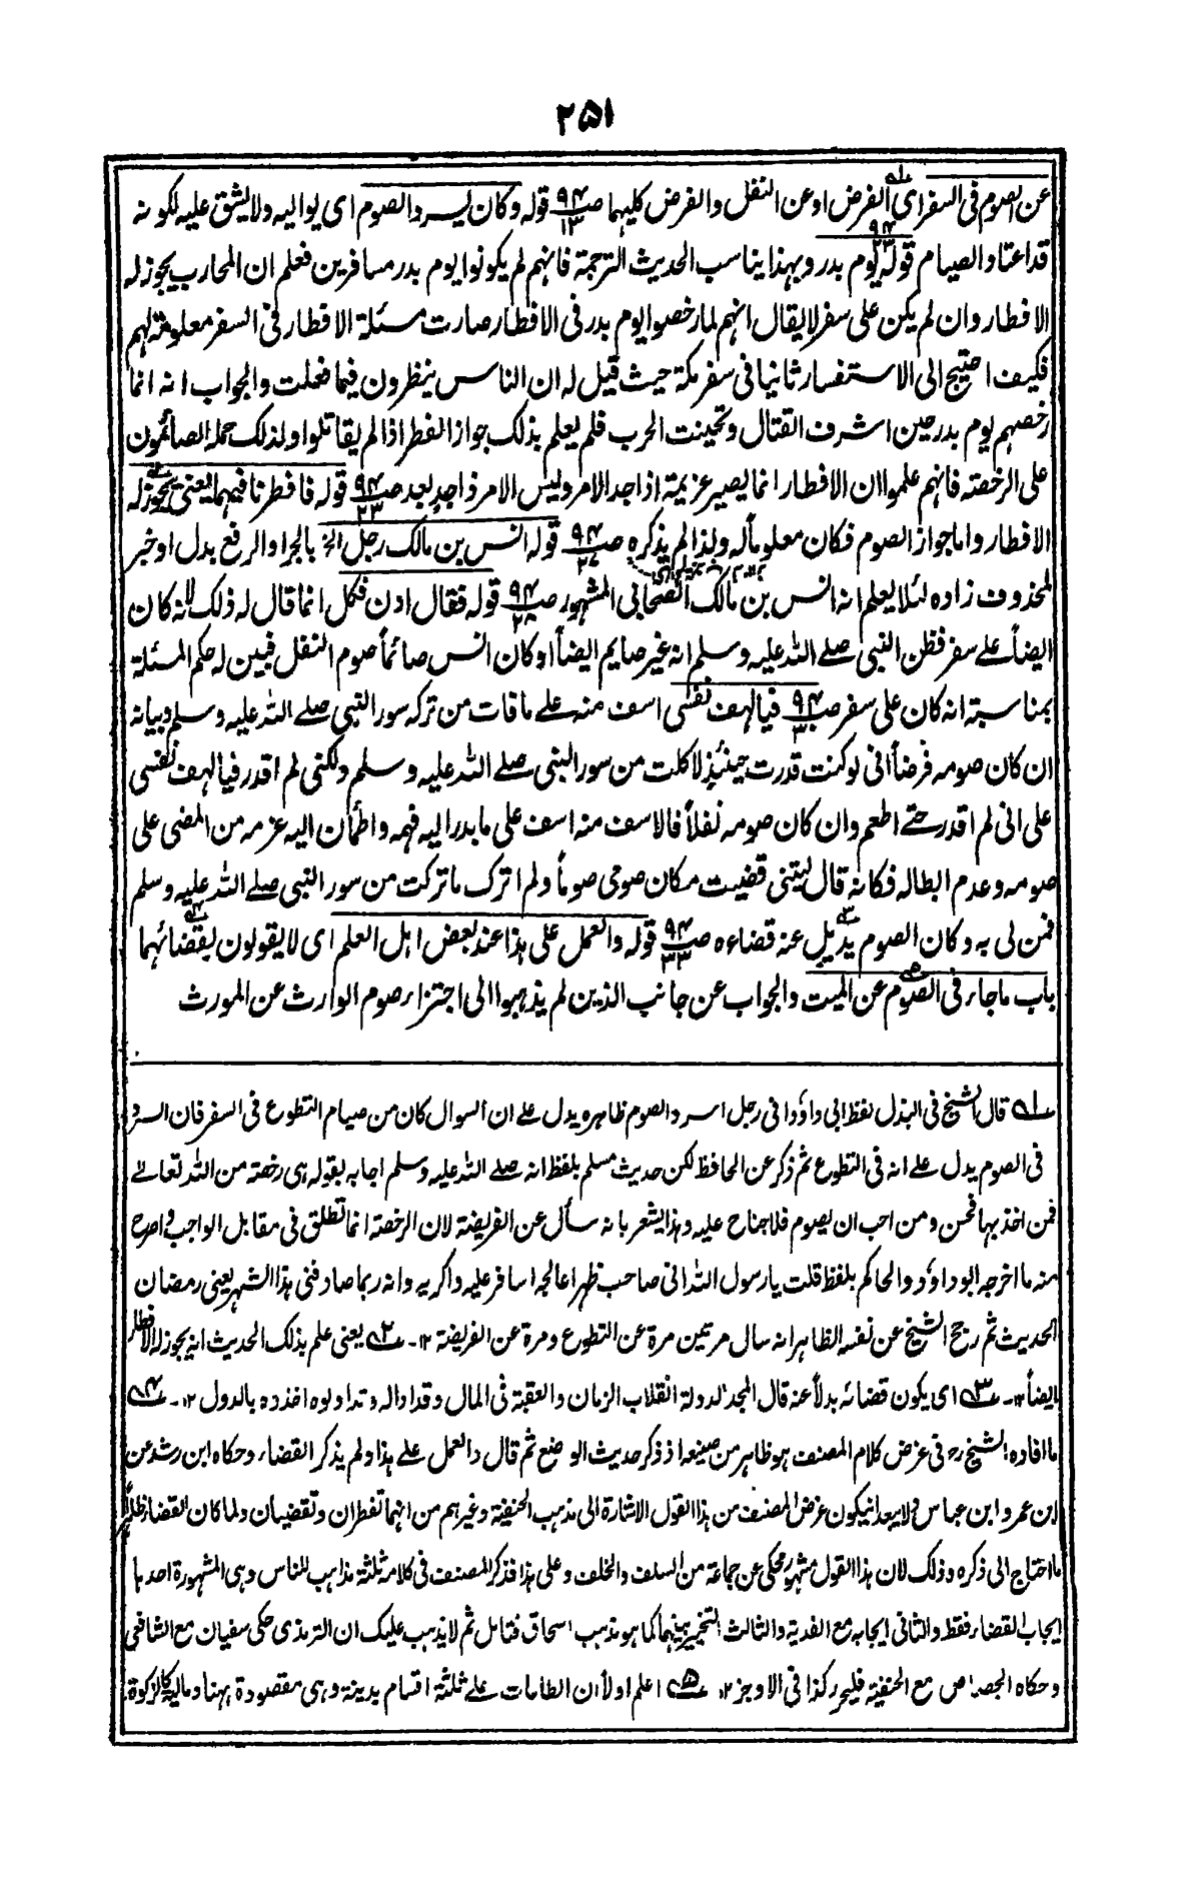 ٢٥١
عن الصوم فى السفر اى الفرض او عن النفل والفرض كليهما صـ ٩٤/١٣ قوله وكان يسرد الصوم اى يواليه ولا يشق عليه لكونه
قد اعتاد الصيام قوله يوم بدر وبهذا يناسب الحديث الترجمة فانهم لم يكونوا يوم بدر مسافرين فعلم ان المحارب يجوز له
الافطار وان لم يكن على سفر لا يقال انهم لما رخصوا يوم بدر فى الافطار صارت مسئلة الافطار فى السفر معلومة لهم
فكيف احتيج الى الاستفسار ثانيا فى سفر مكة حيث قيل له ان الناس ينظرون فيما فعلت والجواب انه انما
رخصهم يوم بدر حين اشرف القتال وتحينت الحرب فلم يعلم بذلك جواز الفطر اذا لم يقاتلوا ولذلك حمله الصائمون
على الرخصة فانهم علموا ان الافطار انما يصير عزيمة اذا جد الامر وليس الامر ذا جد بعد صـ ٩٤/٢٣ قوله فافطرنا فيهما يعنى يجوز له
الافطار واما جواز الصوم فكان معلوماً له ولذا لم يذكره صـ ٩٤ قوله انس بن مالك رجل الخ بالجر او الرفع بدل او خبر
لمحذوف زاده لئلا يعلم انه انس بن مالك الصحابى المشهور صـ ٩٤ قوله فقال ادن فكل انما قال له ذلك لانه كان
ايضاً على سفر فظن النبى صلى الله عليه وسلم انه غير صايم ايضاً او كان انس صائماً صوم النفل فبين له حكم المسئلة
بمناسبة انه كان على سفر صـ ٩٤/٣٠ فيالهف نفسى اسف منه على ما فات من تركه سور النبى صلى الله عليه وسلم وبيانه
ان كان صومه فرضاً انى لو كنت قدرت حينئذ لاكلت من سور النبى صلى الله عليه وسلم ولكنى لم اقدر فيالهف نفسى
على انى لم اقدر حتى اطعم وان كان صومه نفلاً فالاسف منه اسف على ما بدر اليه فهمه واطمأن اليه عزمه من المضى على
صومه وعدم ابطاله فكانه قال ليتنى قضيت مكان صومى صوماً ولم اترك ما تركت من سور النبى صلى الله عليه وسلم
فمن لى به وكان الصوم يديل عنه قضاءه صـ ٩٤/٣٣ قوله والعمل على هذا عند بعض اهل العلم اى لا يقولون بقضائهما
باب ما جاء فى الصوم عن الميت والجواب عن جانب الذين لم يذهبوا الى اجتزاء صوم الوارث عن المورث
١ قال الشيخ فى البذل لفظ ابى داؤد انى رجل اسرد الصوم ظاهره يدل على ان السوال كان من صيام التطوع فى السفر فان السرد
فى الصوم يدل على انه فى التطوع ثم ذكر عن الحافظ لكن حديث مسلم بلفظ انه صلى الله عليه وسلم اجابه بقوله هى رخصة من الله تعالى
فمن اخذ بها فحسن ومن احب ان يصوم فلا جناح عليه وهذا يشعر بانه سأل عن الفريضة لان الرخصة انما تطلق فى مقابل الواجب واصرح
منه ما اخرجه ابو داؤد والحاكم بلفظ قلت يا رسول الله انى صاحب ظهر اعالجه اسافر عليه واكريه وانه ربما صادفنى هذا الشهر يعنى رمضان
الحديث ثم رجح الشيخ عن نفسه الظاهر انه سال مرتين مرة عن التطوع ومرة عن الفريضة ١٢ـ ٢ يعنى علم بذلك الحديث انه يجوز له الافطار
ايضاً ١٢ـ ٣ اى يكون قضائه بدلاً عنه قال المجد الدولة انقلاب الزمان والعقبة فى المال وقد اداله وتداولوه اخذوه بالدول ١٢ـ ٤
ما افاده الشيخ رح فى غرض كلام المصنف هو ظاهر من صنيعه اذ ذكر حديث الوضع ثم قال والعمل على هذا ولم يذكر القضاء وحكاه ابن رشد عن
ابن عمر وابن عباس ولا يبعد ان يكون غرض المصنف من هذا القول الاشارة الى مذهب الحنفية وغيرهم من انهما تفطران وتقضيان ولما كان القضاء ظاهراً
ما احتاج الى ذكره وذلك لان هذا القول مشهور محكى عن جماعة من السلف والخلف وعلى هذا فذكر المصنف فى كلامه ثلثة مذاهب للناس وهى المشهورة احدها
ايجاب القضاء فقط والثانى ايجابه مع الفدية والثالث التخيير بينهما كما هو مذهب اسحاق فتامل ثم لا يذهب عليك ان الترمذى حكى سفيان مع الشافعى
وحكاه الجصاص مع الحنفية فليحرر كذا فى الاوجز ١٢ ٥ اعلم اولاً ان الطاعات على ثلثة اقسام بدينة وهى مقصودة بهنا ومالية كالزكوة